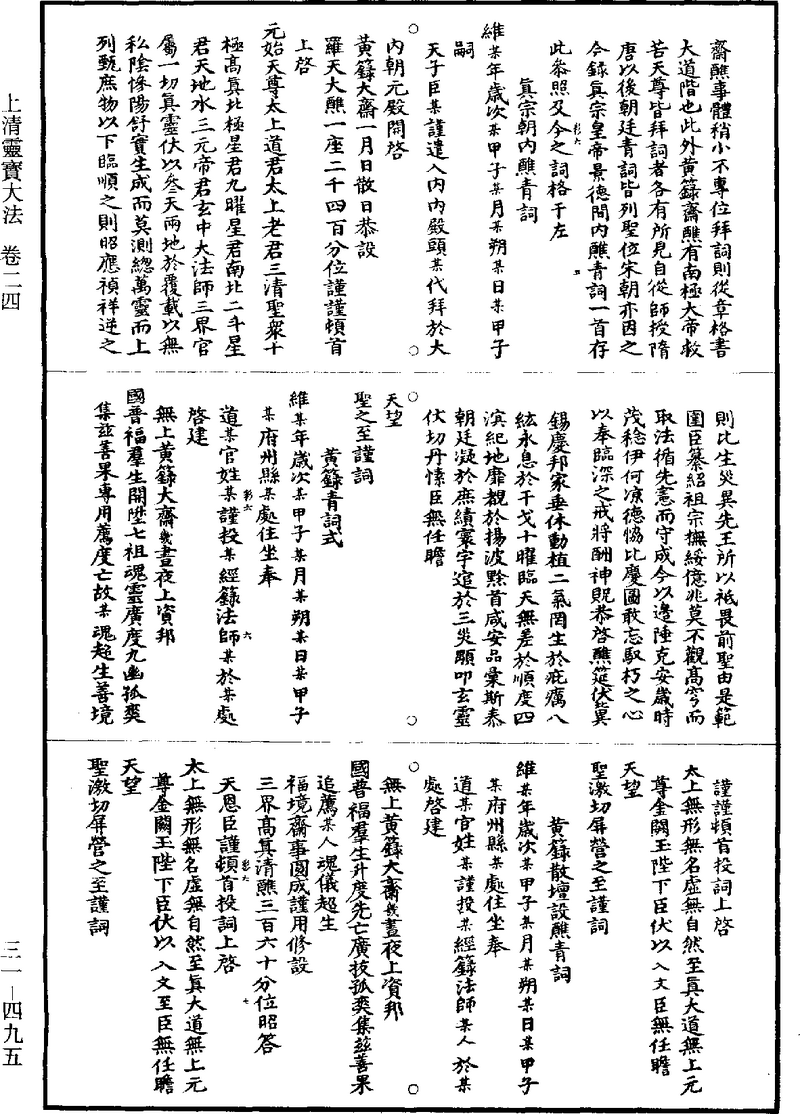 上清靈寶大法　卷二四
三一－四九五
齋醮事體稍小不專位拜詞則從章格書
大道階也此外黃籙齋醮有南極大帝救
苦天尊皆拜詞者各有所見自從師授隋
唐以後朝廷青詞皆列聖位宋朝亦因之
今錄真宗皇帝景德間內醮青詞一首存
此叅照及今之詞格于左
真宗朝內醮青詞
維某年歲次某甲子某月某朔某日某甲子
嗣
天子臣某謹遣入內內殿頭某代拜於大
內朝元殿開啓
黃籙大齋一月日散日恭設
羅天大醮一座二千四百分位謹謹頓首
上啓
元始天尊太上道君太上老君三清聖衆十
極高真北極星君九曜星君南北二斗星
君天地水三元帝君玄中大法師三界官
屬一切真靈伏以叄天兩地於覆載以無
私陰慘陽舒實生成而莫測總萬靈而上
列甄庶物以下臨順之則昭應禎祥逆之
則比生災異先王所以祗畏前聖由是範
圍臣纂紹祖宗撫綏億兆莫不觀高穹而
取法循先憲而守成今以邊陲克安歲時
茂稔伊何凉德恊比慶圖敢忘馭朽之心
以奉臨深之戒將酬神貺恭啓醮筵伏冀
錫慶邦家垂休動植二氣罔生於疵癘八
紘永息於干戈十曜臨天無差於順度四
溟紀地靡覩於揚波黔首咸安品彙斯泰
朝廷凝於庶績寰宇逭於三災顒叩玄靈
伏切丹愫臣無任瞻
天望
聖之至謹詞
黃籙青詞式
維某年歲次某甲子某月某朔某日某甲子
某府州縣某處住坐奉
道某官姓某謹投某經籙法師某於某處
啓建
無上黃籙大齋幾晝夜上資邦
國普福羣生開陞七祖魂靈廣度九幽孤爽
集玆善果專用薦度亡故某魂超生善境
謹謹頓首投詞上啓
太上無形無名虛無自然至真大道無上元
尊金闕玉陛下臣伏以入文臣無任瞻
天望
聖激切屏營之至謹詞
黃籙散壇設醮青詞
維某年歲次某甲子某月某朔某日某甲子
某府州縣某處住坐奉
道某官姓某謹投某經籙法師某人於某
處啓建
無上黃籙大齋幾晝夜上資邦
國普福羣生升度先亡廣拔孤爽集玆善果
追薦某人魂儀超生
福境齋事圓成謹用修設
三界高真清醮三百六十分位昭答
天恩臣謹頓首投詞上啓
太上無形無名虛無自然至真大道無上元
尊金闕玉陛下臣伏以入文至臣無任瞻
天望
聖激切屏營之至謹詞